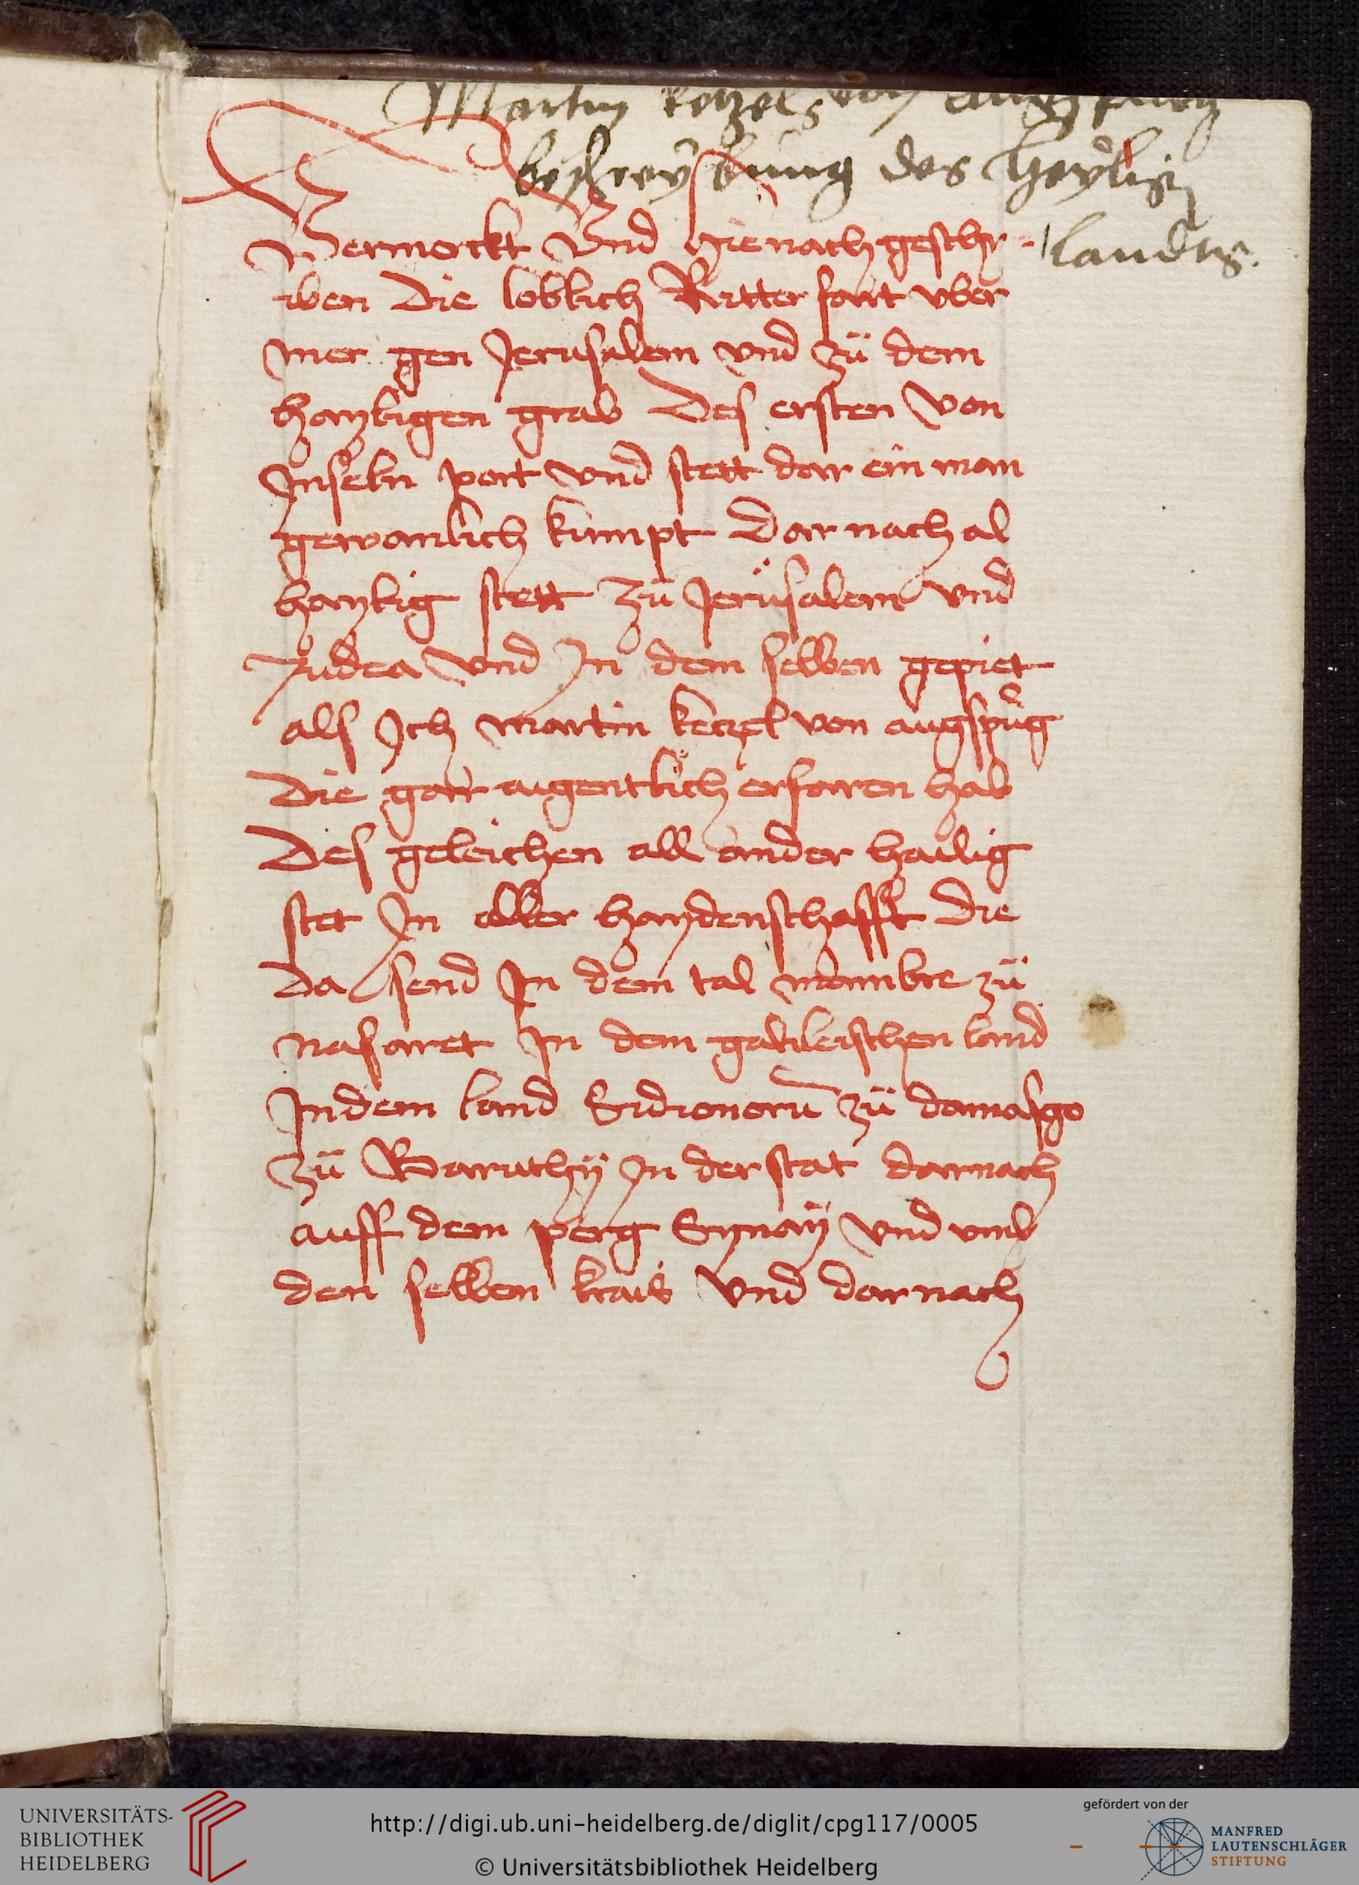 Martin ketzels von augspurg
beschreybung des heyligen
landes.
Vermerckt Vnd Hie nach geschr-
iben Die loblich Ritter fart vber
mer gen Jerusalem vnd zü dem
hayligen grab Des ersten Von
Inseln port vnd stett dar ein man
gewonlich kümpt Dar nach al
haylig stett Zü Jerüsalem vnd
Judea vnd Jn dem selben gepiet
als Jch martin ketzel von augspürg
Die gar aigentlich erfaren hab
Des geleichen all ander hailig
stet Jn aller haydenschafft Die
Da send Jn dem tal mambre zü
nasaret Jn dem galileischen land
Jn dem land Sidionorū zü damasgo
zü Baruthÿ Jn der stat darnach
auff dem perg Synaÿ vnd vmb
den selben krais Vnd darnach
UNIVERSITÄTS-
BIBLIOTHEK
HEIDELBERG
http://digi.ub.uni-heidelberg.de/diglit/cpg117/0005
© Universitätsbibliothek Heidelberg
gefördert von der
MANFRED
LAUTENSCHLÄGER
STIFTUNG